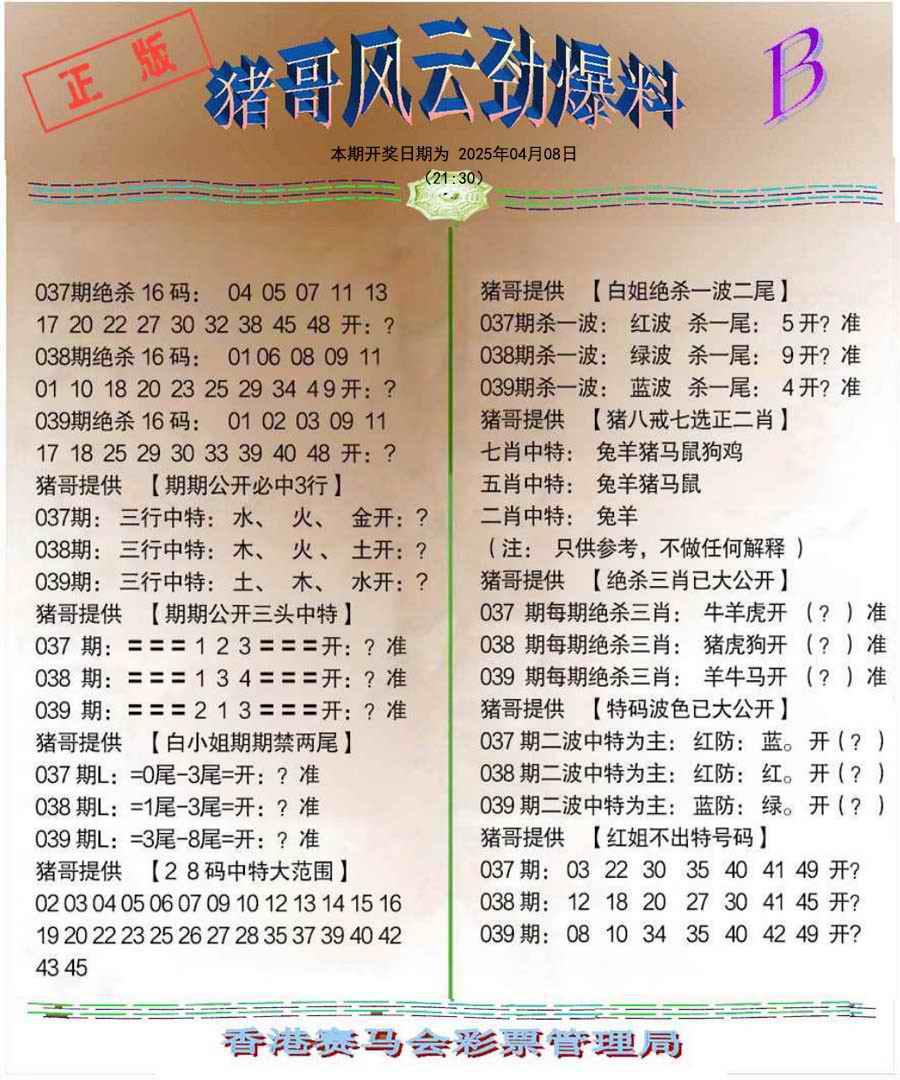 正版
猪哥风云劲爆料
B
本期开奖日期为 2025年04月08日
(21:30)
037期绝杀16码： 04 05 07 11 13
17 20 22 27 30 32 38 45 48 开：?
038期绝杀16码： 01 06 08 09 11
01 10 18 20 23 25 29 34 49开：?
039期绝杀16码： 01 02 03 09 11
17 18 25 29 30 33 39 40 48 开：?
猪哥提供 【期期公开必中3行】
037期：三行中特：水、 火、 金开：?
038期：三行中特：木、 火、 土开：?
039期：三行中特：土、 木、 水开：?
猪哥提供 【期期公开三头中特】
037 期：〓〓〓1 2 3〓〓〓开：? 准
038 期：〓〓〓1 3 4〓〓〓开：? 准
039 期：〓〓〓2 1 3〓〓〓开：? 准
猪哥提供 【白小姐期期禁两尾】
037期L：=0尾-3尾=开：? 准
038期L：=1尾-3尾=开：? 准
039期L：=3尾-8尾=开：? 准
猪哥提供 【28码中特大范围】
02 03 04 05 06 07 09 10 12 13 14 15 16
19 20 22 23 25 26 27 28 35 37 39 40 42
43 45
猪哥提供 【白姐绝杀一波二尾】
037期杀一波： 红波 杀一尾： 5开? 准
038期杀一波： 绿波 杀一尾： 9开? 准
039期杀一波： 蓝波 杀一尾： 4开? 准
猪哥提供 【猪八戒七选正二肖】
七肖中特： 兔羊猪马鼠狗鸡
五肖中特： 兔羊猪马鼠
二肖中特： 兔羊
（注： 只供参考，不做任何解释）
猪哥提供 【绝杀三肖已大公开】
037 期每期绝杀三肖： 牛羊虎开 （?）准
038 期每期绝杀三肖： 猪虎狗开 （?）准
039 期每期绝杀三肖： 羊牛马开 （?）准
猪哥提供 【特码波色已大公开】
037期二波中特为主：红防：蓝。开（?）
038期二波中特为主：红防：红。开（?）
039期二波中特为主：蓝防：绿。开（?）
猪哥提供 【红姐不出特号码】
037期：03 22 30 35 40 41 49 开?
038期：12 18 20 27 30 41 45 开?
039期：08 10 34 35 40 42 49 开?
香港赛马会彩票管理局